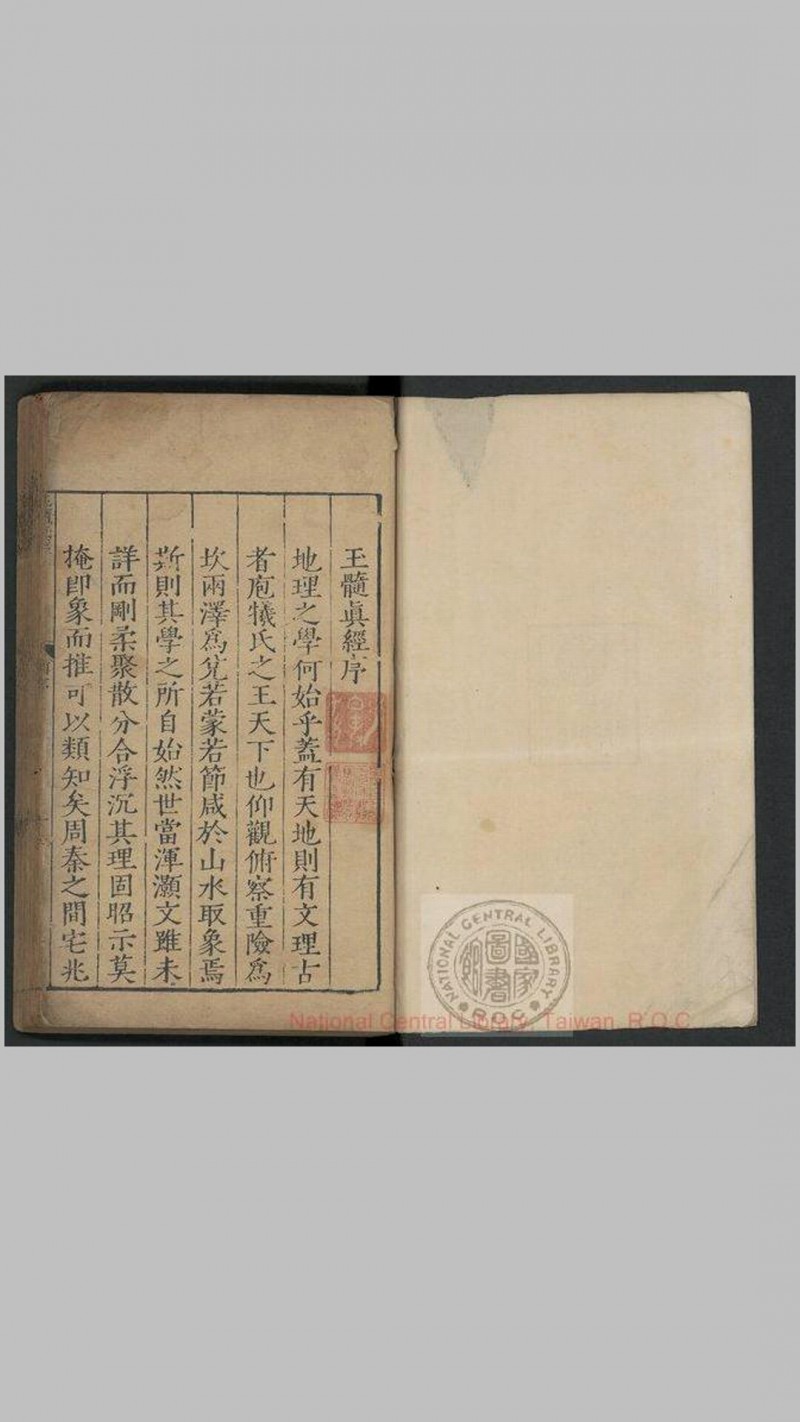 玉髓眞經序
地理之學何始乎蓋有天地則有文理古
者庖犧氏之王天下也仰觀俯察重險爲
坎兩澤爲兌若蒙若節咸於山水取象焉
斯則其學之所自始然世當渾灝文雖未
詳而剛柔聚散分合浮沉其理固昭示莫
掩即象而推可以類知矣周秦之間宅兆
NATIONAL CENTRAL LIBRARY
R.O.C.
國家
圖書
館
National Central Library, Taiwan, R.O.C